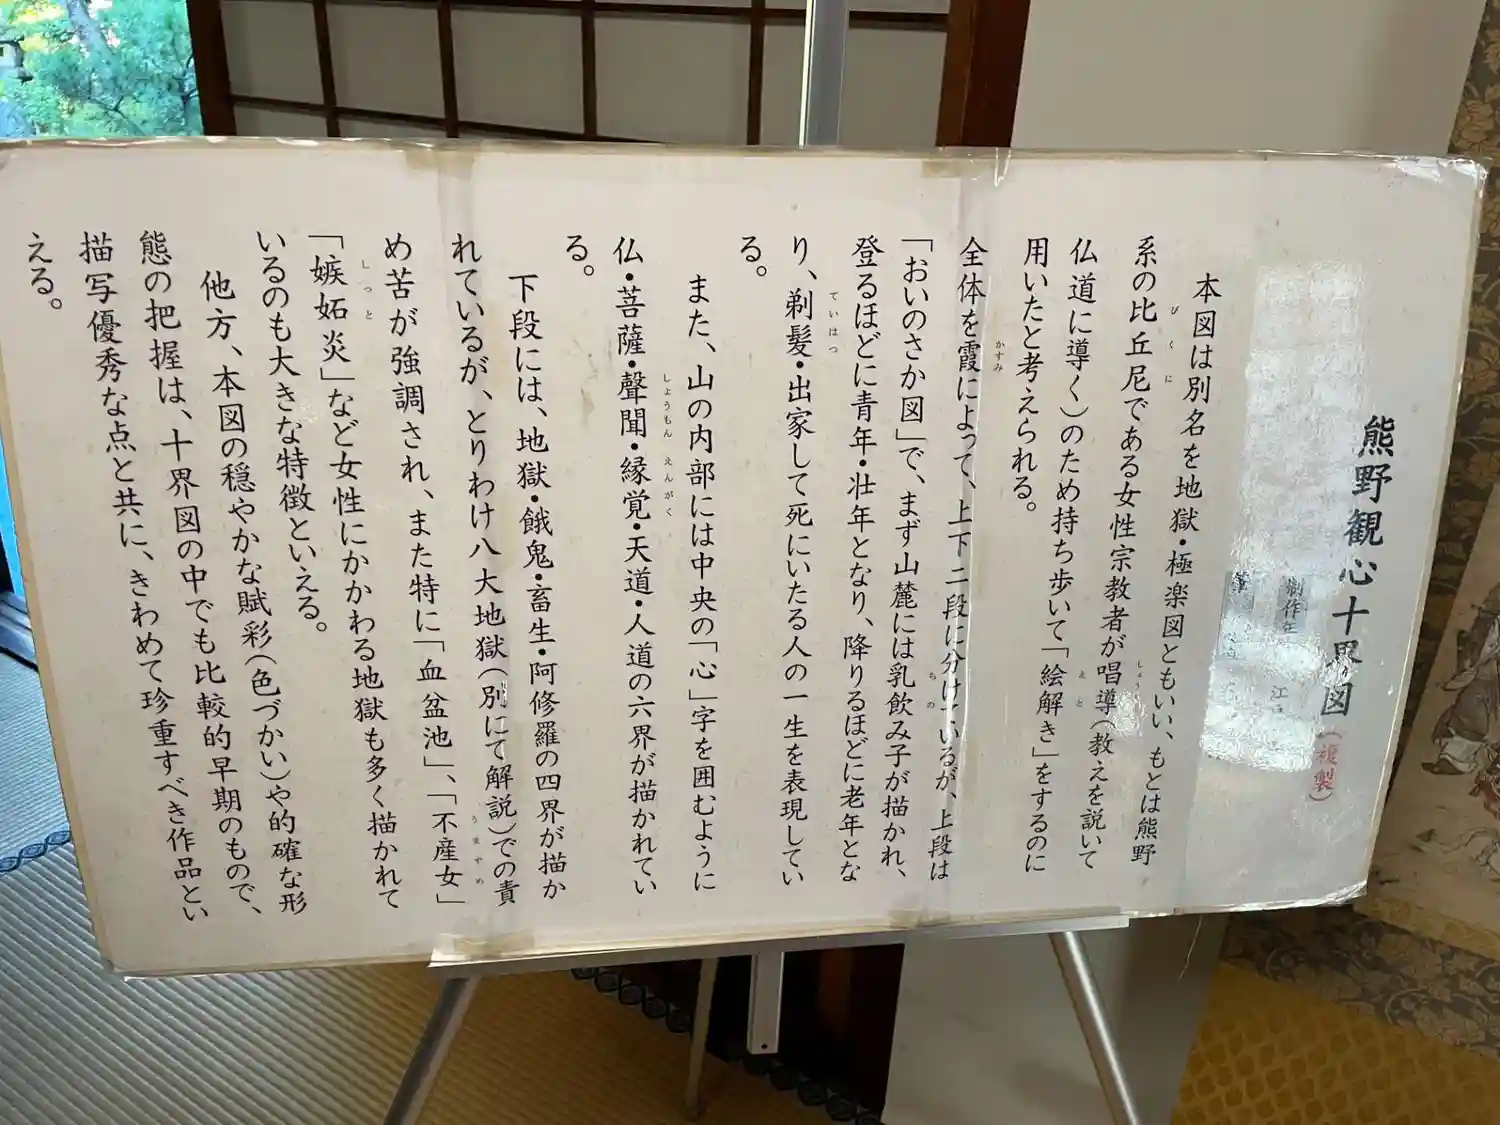 熊野観心十界図（複製）
制作年 江
筆
本図は別名を地獄・極楽図ともいい、もとは熊野
系の比丘尼である女性宗教者が唱導（教えを説いて
びくに
しょう
仏道に導く）のため持ち歩いて「絵解き」をするのに
えと
用いたと考えられる。
全体を霞によって、上下二段に分けているが、上段は
かすみ
「おいのさか図」で、まず山麓には乳飲み子が描かれ、
ちの
登るほどに青年・壮年となり、降りるほどに老年とな
り、剃髪・出家して死にいたる人の一生を表現してい
ていはつ
る。
また、山の内部には中央の「心」字を囲むように
仏・菩薩・聲聞・縁覚・天道・人道の六界が描かれてい
しょうもん えんがく
る。
下段には、地獄・餓鬼・畜生・阿修羅の四界が描か
れているが、とりわけ八大地獄（別にて解説）での責
め苦が強調され、また特に「血盆池」、「不産女」
うまずめ
「嫉妬炎」など女性にかかわる地獄も多く描かれて
しっと
いるのも大きな特徴といえる。
他方、本図の穏やかな賦彩（色づかい）や的確な形
態の把握は、十界図の中でも比較的早期のもので、
描写優秀な点と共に、きわめて珍重すべき作品とい
える。